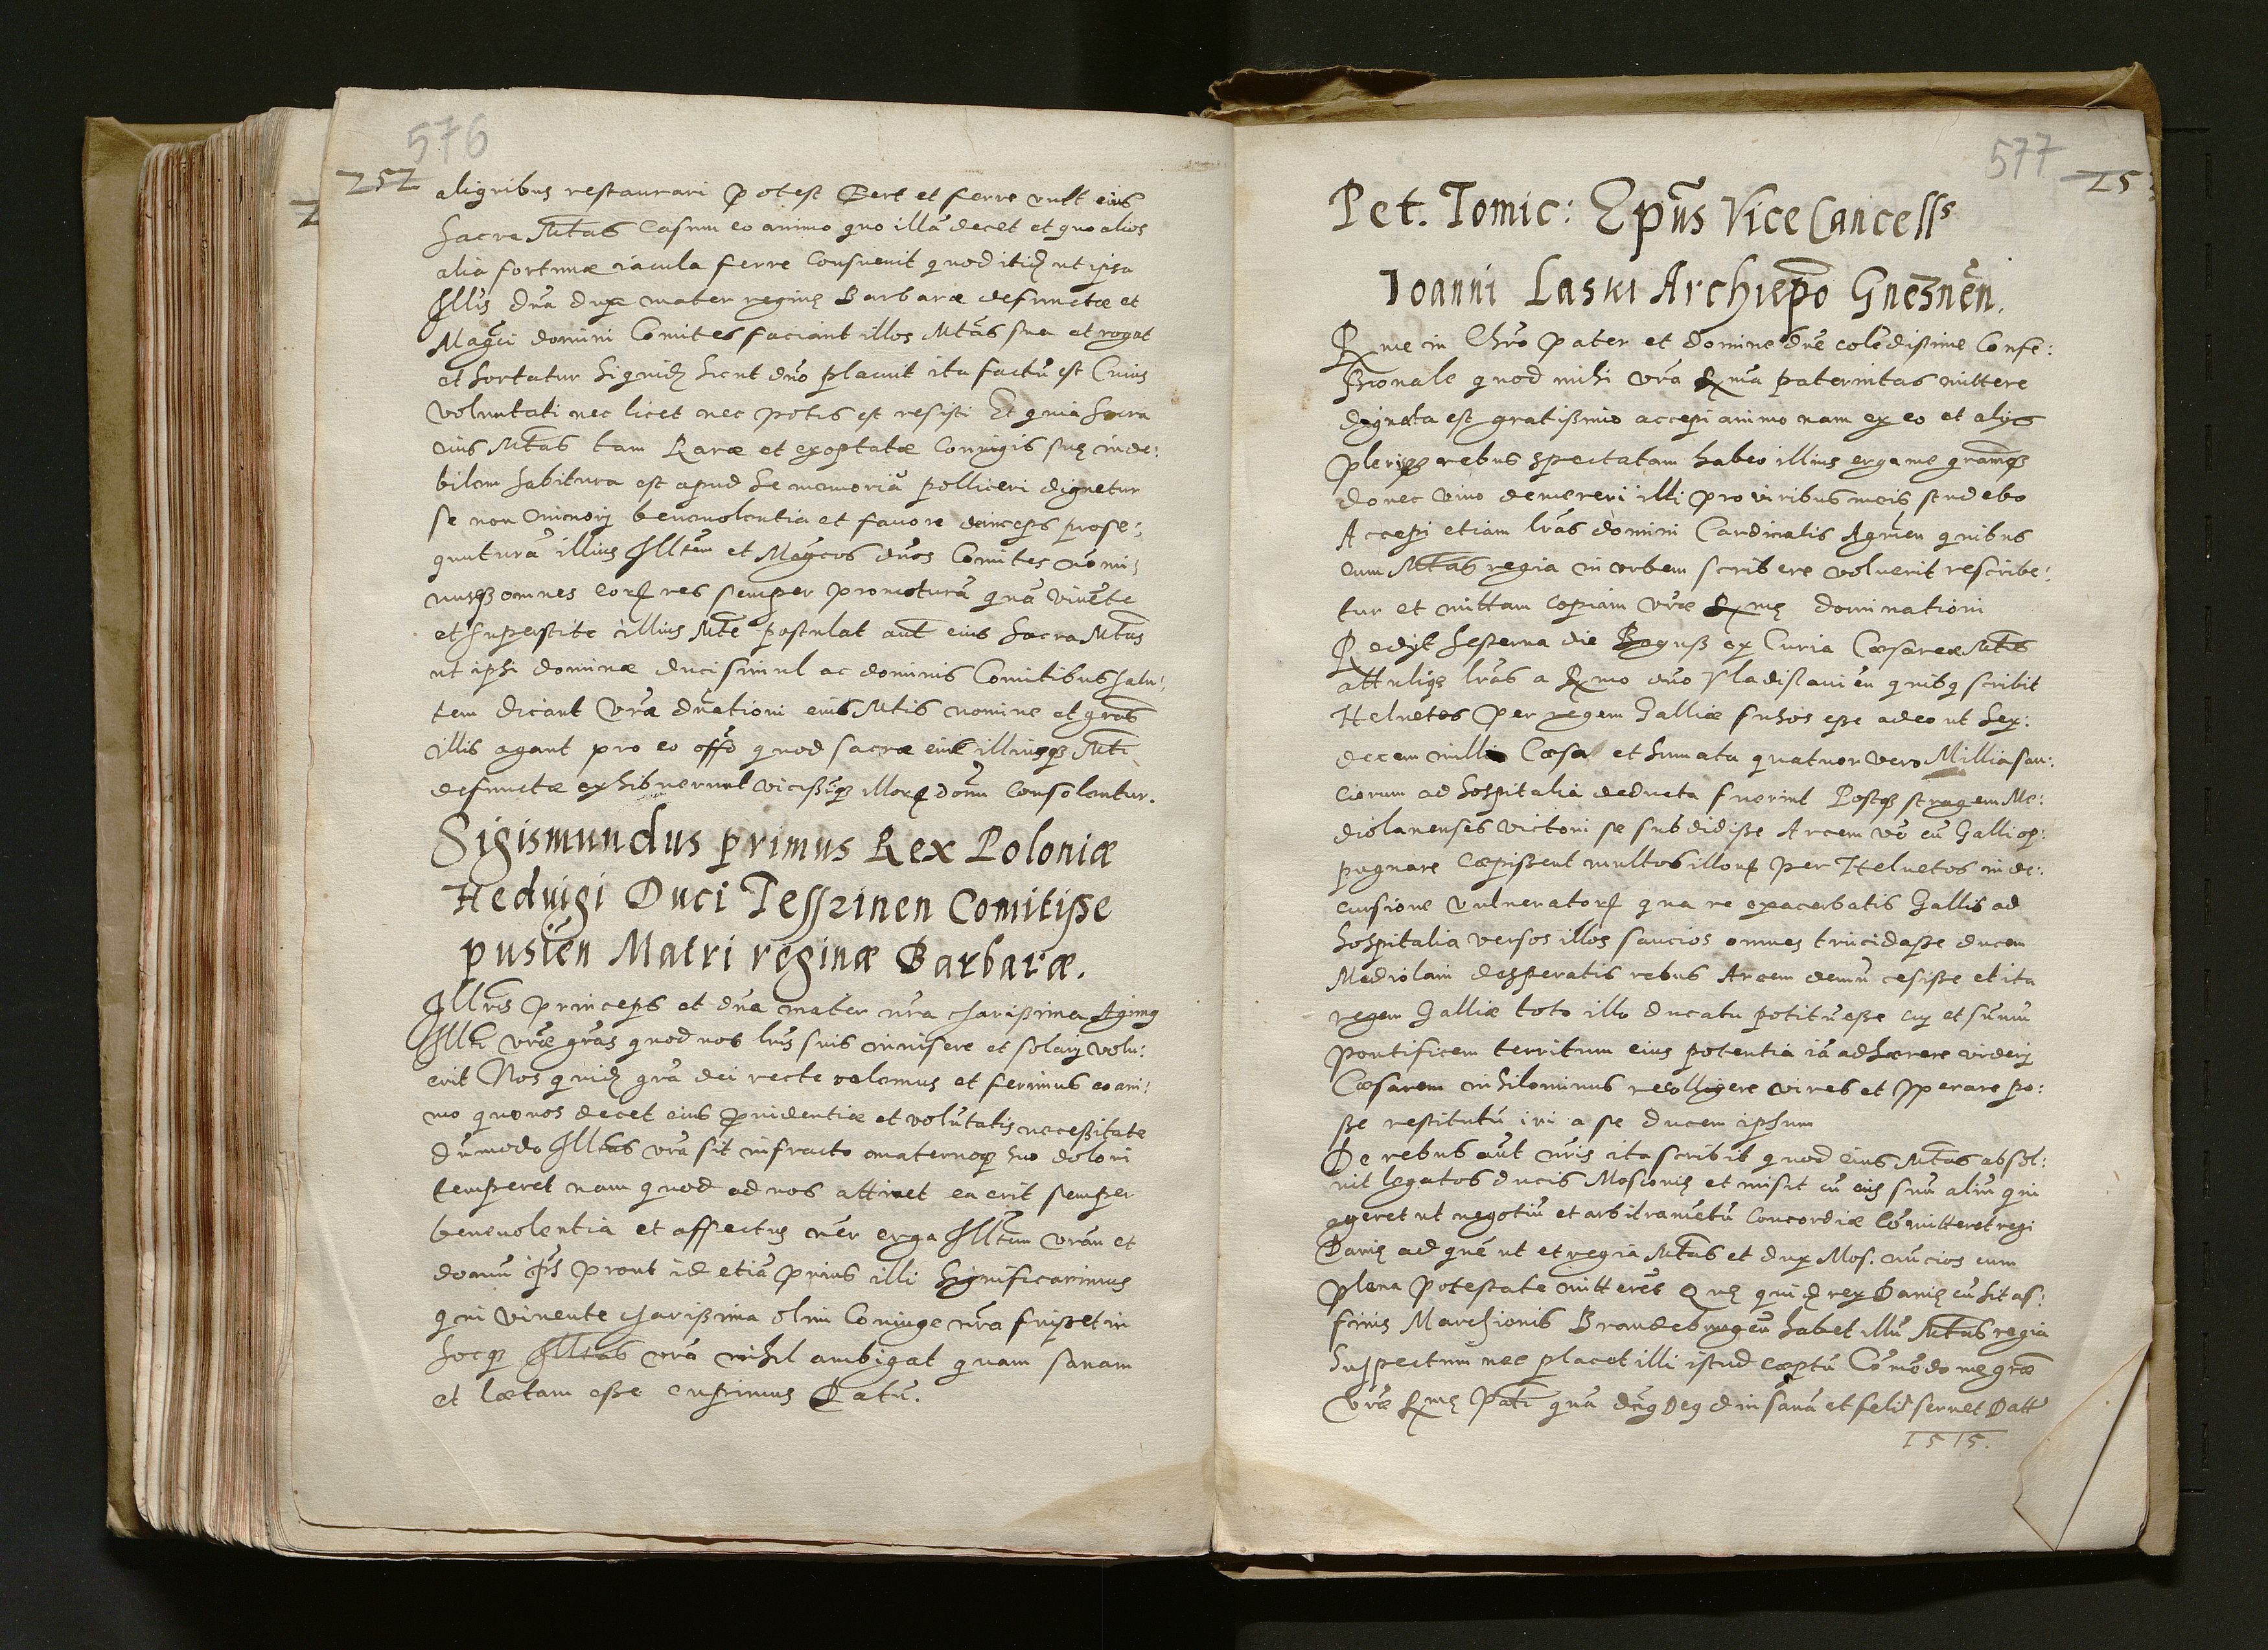 576
252
aligribus restaurari potest Fert et ferre vult eius
sacra Mtas Casum eo animo quo illã decet et quo alios
alia fortunæ iacula ferre Consuevit quod itidẽ ut ipsa
Illris dña dux mater reginę Barbaræ defunctæ et
Magci domini Comites faciant illos Mtas sua et rogat
et hortatur siquidẽ sicut dño placuit ita factũ est Cuius
voluntati nec licet nec potis est resisti Et quia sacra
eius Mtas tam Raræ et exoptatæ Coniugis suę inde:
bilem habitura est apud se memoriã polliceri dignetur
se non minori benevolentia et favore deinceps prose:
quuturã illius Illtem et Magcos dños Comites nomi:
nusqȝ omnes eorꝝ res semper promoturã quã vivẽte
et superstite illius Mte postulat aut eius sacra Mtas
ut ipsi dominæ duci simul ac dominis Comitibus salu:
tem dicant Vrã dnationi eius Mtis nomine et gras
illis agant pro eo offo quod sacræ eius illiusqȝ Mti
defunctæ exhibuerunt vicissimqȝ illorꝝ domũ Consolantur.
Sigismundus primus Rex Poloniæ
Hedvigi Duci Tesszinen Comitisse
pusien Matri reginæ Barbaræ.
Illris princeps et dña mater nra charissima Agimꝰ
Illti vræ gras quod nos lris suis invisere et solari volu:
erit Nos quidẽ gra dei recte valemus et ferimus eo ani:
mo quo nos decet eius providentiæ et volũtatis necessitate
dũmodo Illtas vra sit infracto maternoqȝ suo dolori
temperet nam quod ad nos attinet ea erit semper
benevolentia et affectus nr erga Illtem vram et
domũ ips prout id etiã prius illi significavimus
qui vivente charissima olim Coniuge nra fuisset in
hocqȝ Illtas vra nihil ambigat quam sanam
et lætam esse cupimus Datũ.
577
25
Pet. Tomic: Epũs Vice Cancells
Ioanni Laski Archiepo Gneznẽn.
Rme in Chro pater et domine dne colẽdissime Confe:
ssionale quod mihi vra Rma paternitas mittere
dignata est gratissimo accepi animo nam ex eo et alijs
plerisqȝ rebus spectatam habeo illius erga me gramqȝ
donec vivo demereri illi pro viribus meis studebo
Accepi etiam lras domini Cardinalis Agrien quibus
cum Mtas regia in urbem scribere voluerit rescribe:
tur et mittam copiam vræ Rmę dominationi
Redijt hesterna die Boguss ex Curia Cæsareæ Mtis
attulitqȝ lras a Rmo dno Vladislavien quibꝰ scribit
Helvetos per regem Galliæ fusos esse adeo ut sex:
decem millia Cæsa et humata quatuor vero Millia sau:
ciorum ad hospitalia deducta fuerint Postqȝ stragem Me:
diolanenses victori se subdidisse Arcem vo cũ Galli op:
pugnare cæpissent multos illorꝝ per Helvetos in de:
cursione vulneratorꝝ qua re exacerbatis Gallis ad
hospitalia versos illos saucios omnes trucidasse ducem
Mediolani desperatis rebus Arcem demũ cesisse et ita
regem Galliæ toto illo ducatu potitũ esse cui et sũmũ
pontificem territum eius potentia iã adhærere videri
Cæsarem nihilominus recolligere vires et sperare po:
sse restitutũ iri a se ducem ipsum
De rebus aut nris ita scribit quod eius Mtas absol:
vit legatos ducis Moscovię et misit cũ eis suũ aliũ qui
ageret ut negotiũ et arbitramẽtũ Concordiæ cõmitteret regi
Danię ad quẽ ut et regia Mtas et dux Mos. nũcios cum
plena potestate mitterẽt Quę quidẽ rex Danię cũ sit af:
finis Marchionis Brandeburgen habet illũ Mtas regia
suspectum nec placet illi istud cæptũ Cõmẽdo me græ
Vræ Rmę Pati quã dnꝰ Deꝰ diu sanã et felicẽ servet Datt
1515.